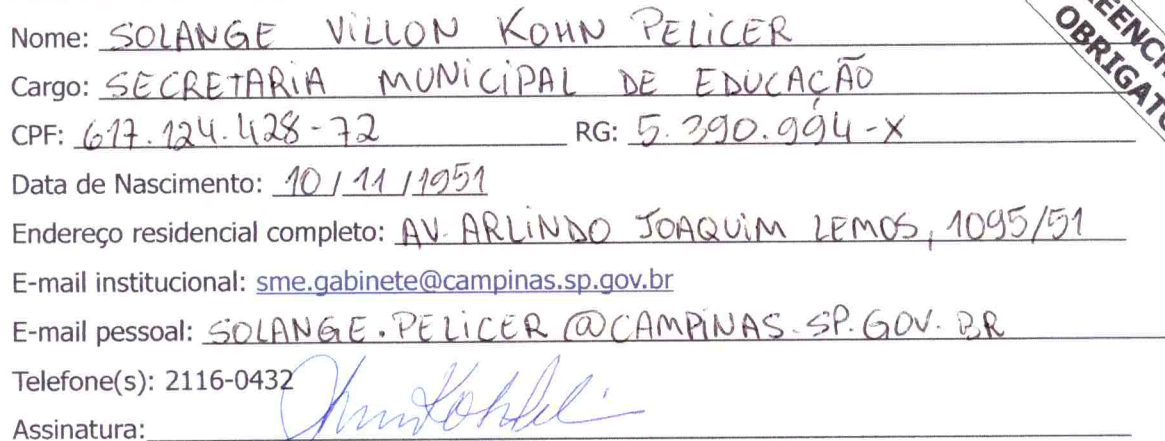 Nome: SOLANGE VILLON KOHN PELICER
Cargo: SECRETARIA MUNICIPAL DE EDUCAÇÃO
CPF: 617.124.428-72 RG: 5.390.994-X
Data de Nascimento: 10/11/1951
Endereço residencial completo: AV. ARLINDO JOAQUIM LEMOS, 1095/51
E-mail institucional: sme.gabinete@campinas.sp.gov.br
E-mail pessoal: SOLANGE.PELICER@CAMPINAS.SP.GOV.BR
Telefone(s): 2116-0432
Assinatura: